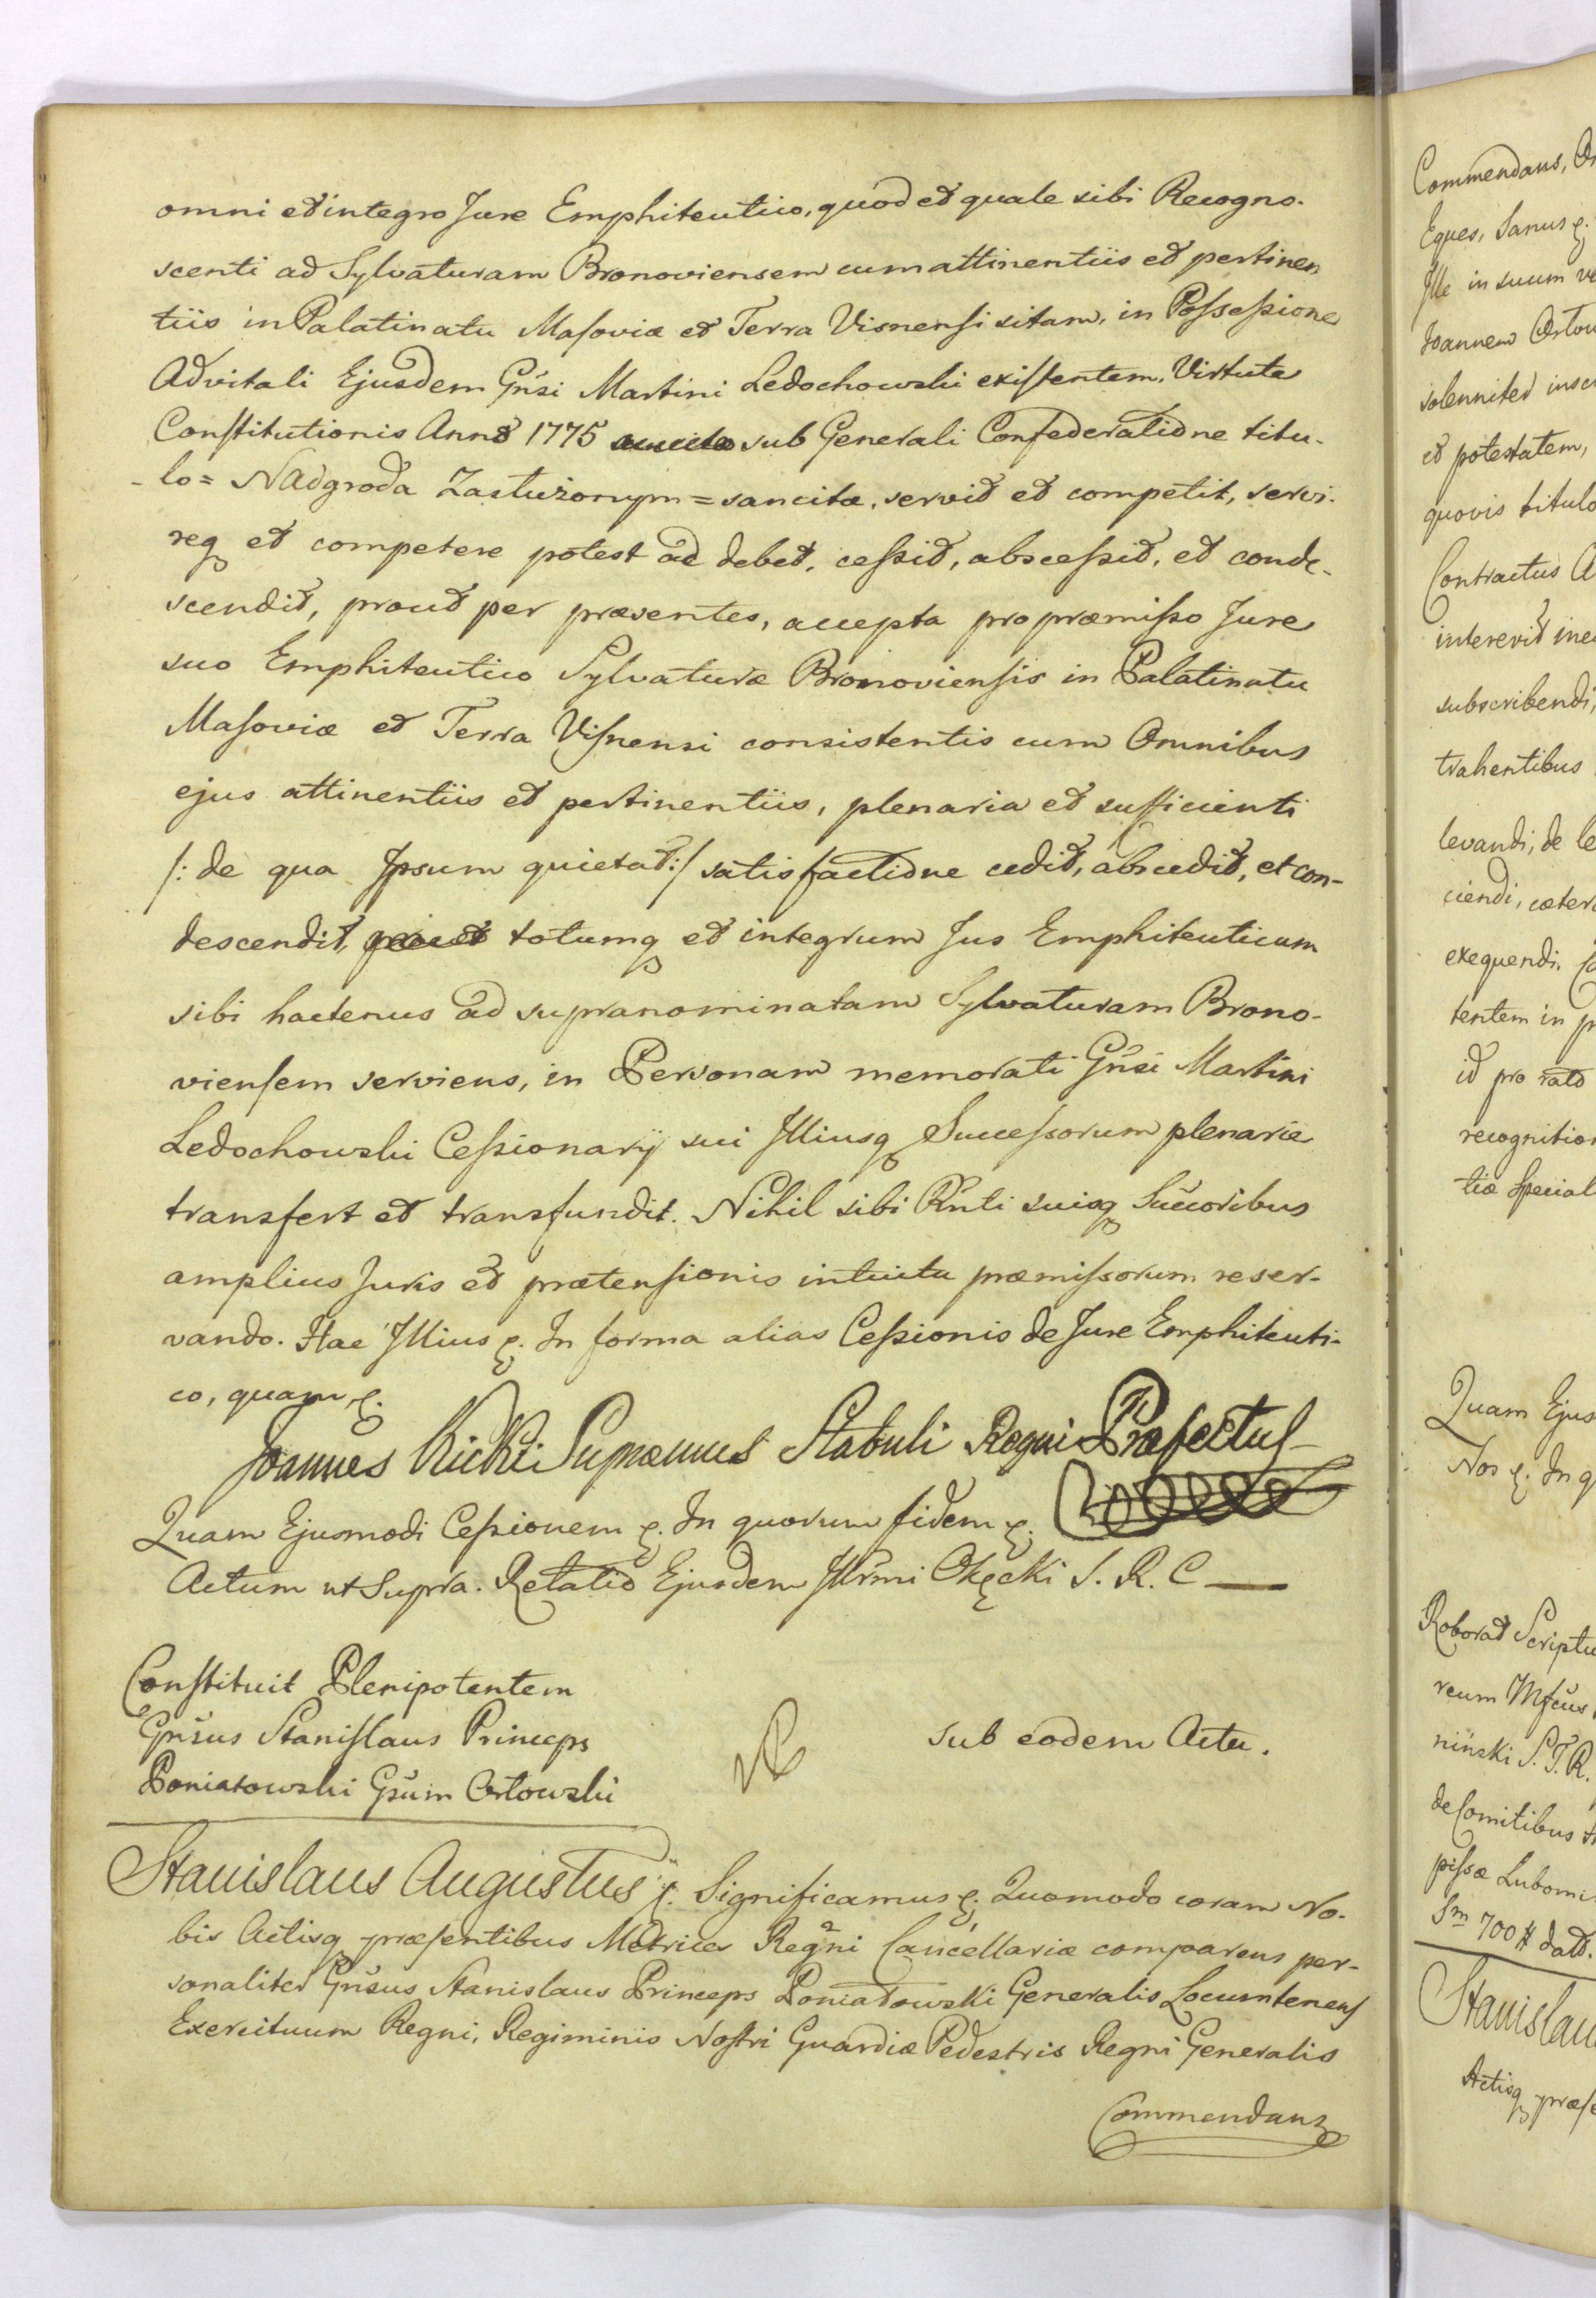 omni et integro Jure Emphiteutico, quod et quale sibi Recogno-
scenti ad Sylvaturam Bronoviensem cum attinentiis et pertinen
tiis in Palatinatu Masoviæ et Terra Visnensi sitam, in Possessione
Advitali Ejusdem Gnsi Martini Ledochowski existentem. Virtute
Constitutionis Anno 1775 sub Generali Confederatione titu-
- lo = Nadgroda Zasłużonym = sancitæ, servit et competit, servi-
req et competere potest ac debet, cessit, abscessit, et conde-
scendit, prout per præsentes, accepta pro præmisso Jure
suo Emphiteutico Sylvaturæ Bronoviensis in Palatinatu
Masoviæ et Terra Visnensi consistentis cum Omnibus
ejus attinentiis et pertinentiis, plenaria et sufficienti
/: de qua Ipsum quietat :/ satisfactione cedit, abscedit, et con-
descendit, totumq et integrum Jus Emphiteuticum
sibi hactenus ad supranominatam Sylvaturam Brono-
viensem serviens, in Personam memorati Gnsi Martini
Ledochowski Cessionarij sui Illiusq Successorum plenarie
transfert et transfundit. Nihil sibi Rnti suisq Succoribus
amplius Juris et prætensionis intuitu præmissorum reser-
vando. Hac Illius &. In forma alias Cessionis de Jure Emphiteuti-
co, quam &.
Joannes Kicki Supræmus Stabuli Regni Præfectus
Quam Ejusmodi Cessionem &. In quorum fidem &.
Actum ut Supra. Relatio Ejusdem Illrmi Okęcki S. R. C
Constituit Plenipotentem
Gnsus Stanislaus Princeps
Poniatowski Gsum Orłowski
sub eodem Actu.
Stanislaus Augustus &. Significamus &. Quomodo coram No-
bis Actisq præsentibus Metrices Regni Cancellariæ comparens per-
sonaliter Gnsus Stanislaus Princeps Poniatowski Generalis Locumtenens
Exercituum Regni, Regiminis Nostri Guardiæ Pedestris Regni Generalis
Commendans
Commendans,
Eques, Sanus &.
Ille in suum
Joannem
solenniter
et potestatem,
quovis titulo
Contractus
intererit
subscribendi,
trahentibus
levandi, de
ciendi,
exequendi,
tentem in
id pro rato
tiæ
Quam
Nos &. In
Roborat
reum
S. T. R.
de Comitibus
700 dat.
Actisq